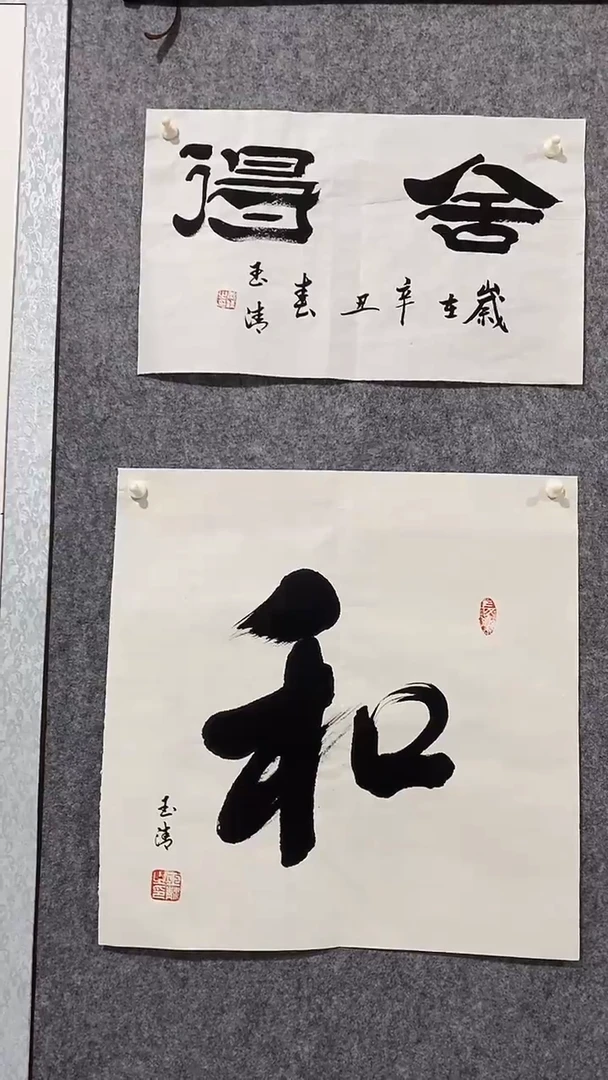 舍得
歲在辛丑春
玉清
和
玉清